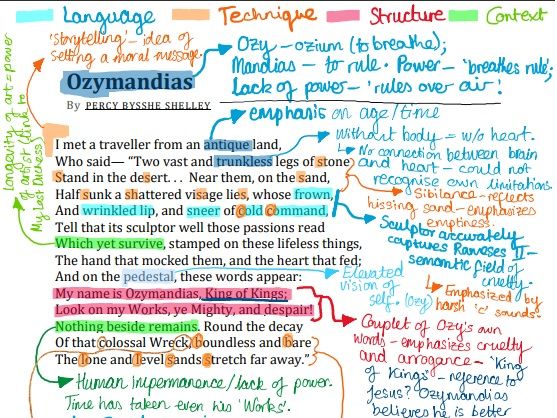 Language Technique Structure Context
'Storytelling' - idea of
setting a moral message.
Ozy - ozium (to breathe);
Mandias - to rule. Power - 'breathes rule';
Lack of power - 'rules over air!
Longevity of art = power
of artist (link to
My Last Duchess)
Ozymandias
BY PERCY BYSSHE SHELLEY
emphasis on age/time
I met a traveller from an antique land,
Who said— “Two vast and trunkless legs of stone
Stand in the desert. . . Near them, on the sand,
Half sunk a shattered visage lies, whose frown,
And wrinkled lip, and sneer of cold command,
Tell that its sculptor well those passions read
Which yet survive, stamped on these lifeless things,
The hand that mocked them, and the heart that fed;
And on the pedestal, these words appear:
My name is Ozymandias, King of Kings;
Look on my Works, ye Mighty, and despair!
Nothing beside remains. Round the decay
Of that colossal Wreck, boundless and bare
The lone and level sands stretch far away.”
Without body = w/o heart.
No connection between brain
and heart - could not
recognise own limitations.
Sibilance - reflects
hissing sand - emphasizes
emptiness.
Sculptor accurately
captures Rameses II -
semantic field of
cruelty.
Elevated
vision of
self. (ozy)
Emphasized by
harsh 'c' sounds.
Couplet of Ozy's own
words - emphasizes cruelty
and arrogance - 'King
of Kings' - reference to
Jesus? Ozymandias
believes he is better
Human impermanence/lack of power.
Time has taken even his 'Works'.